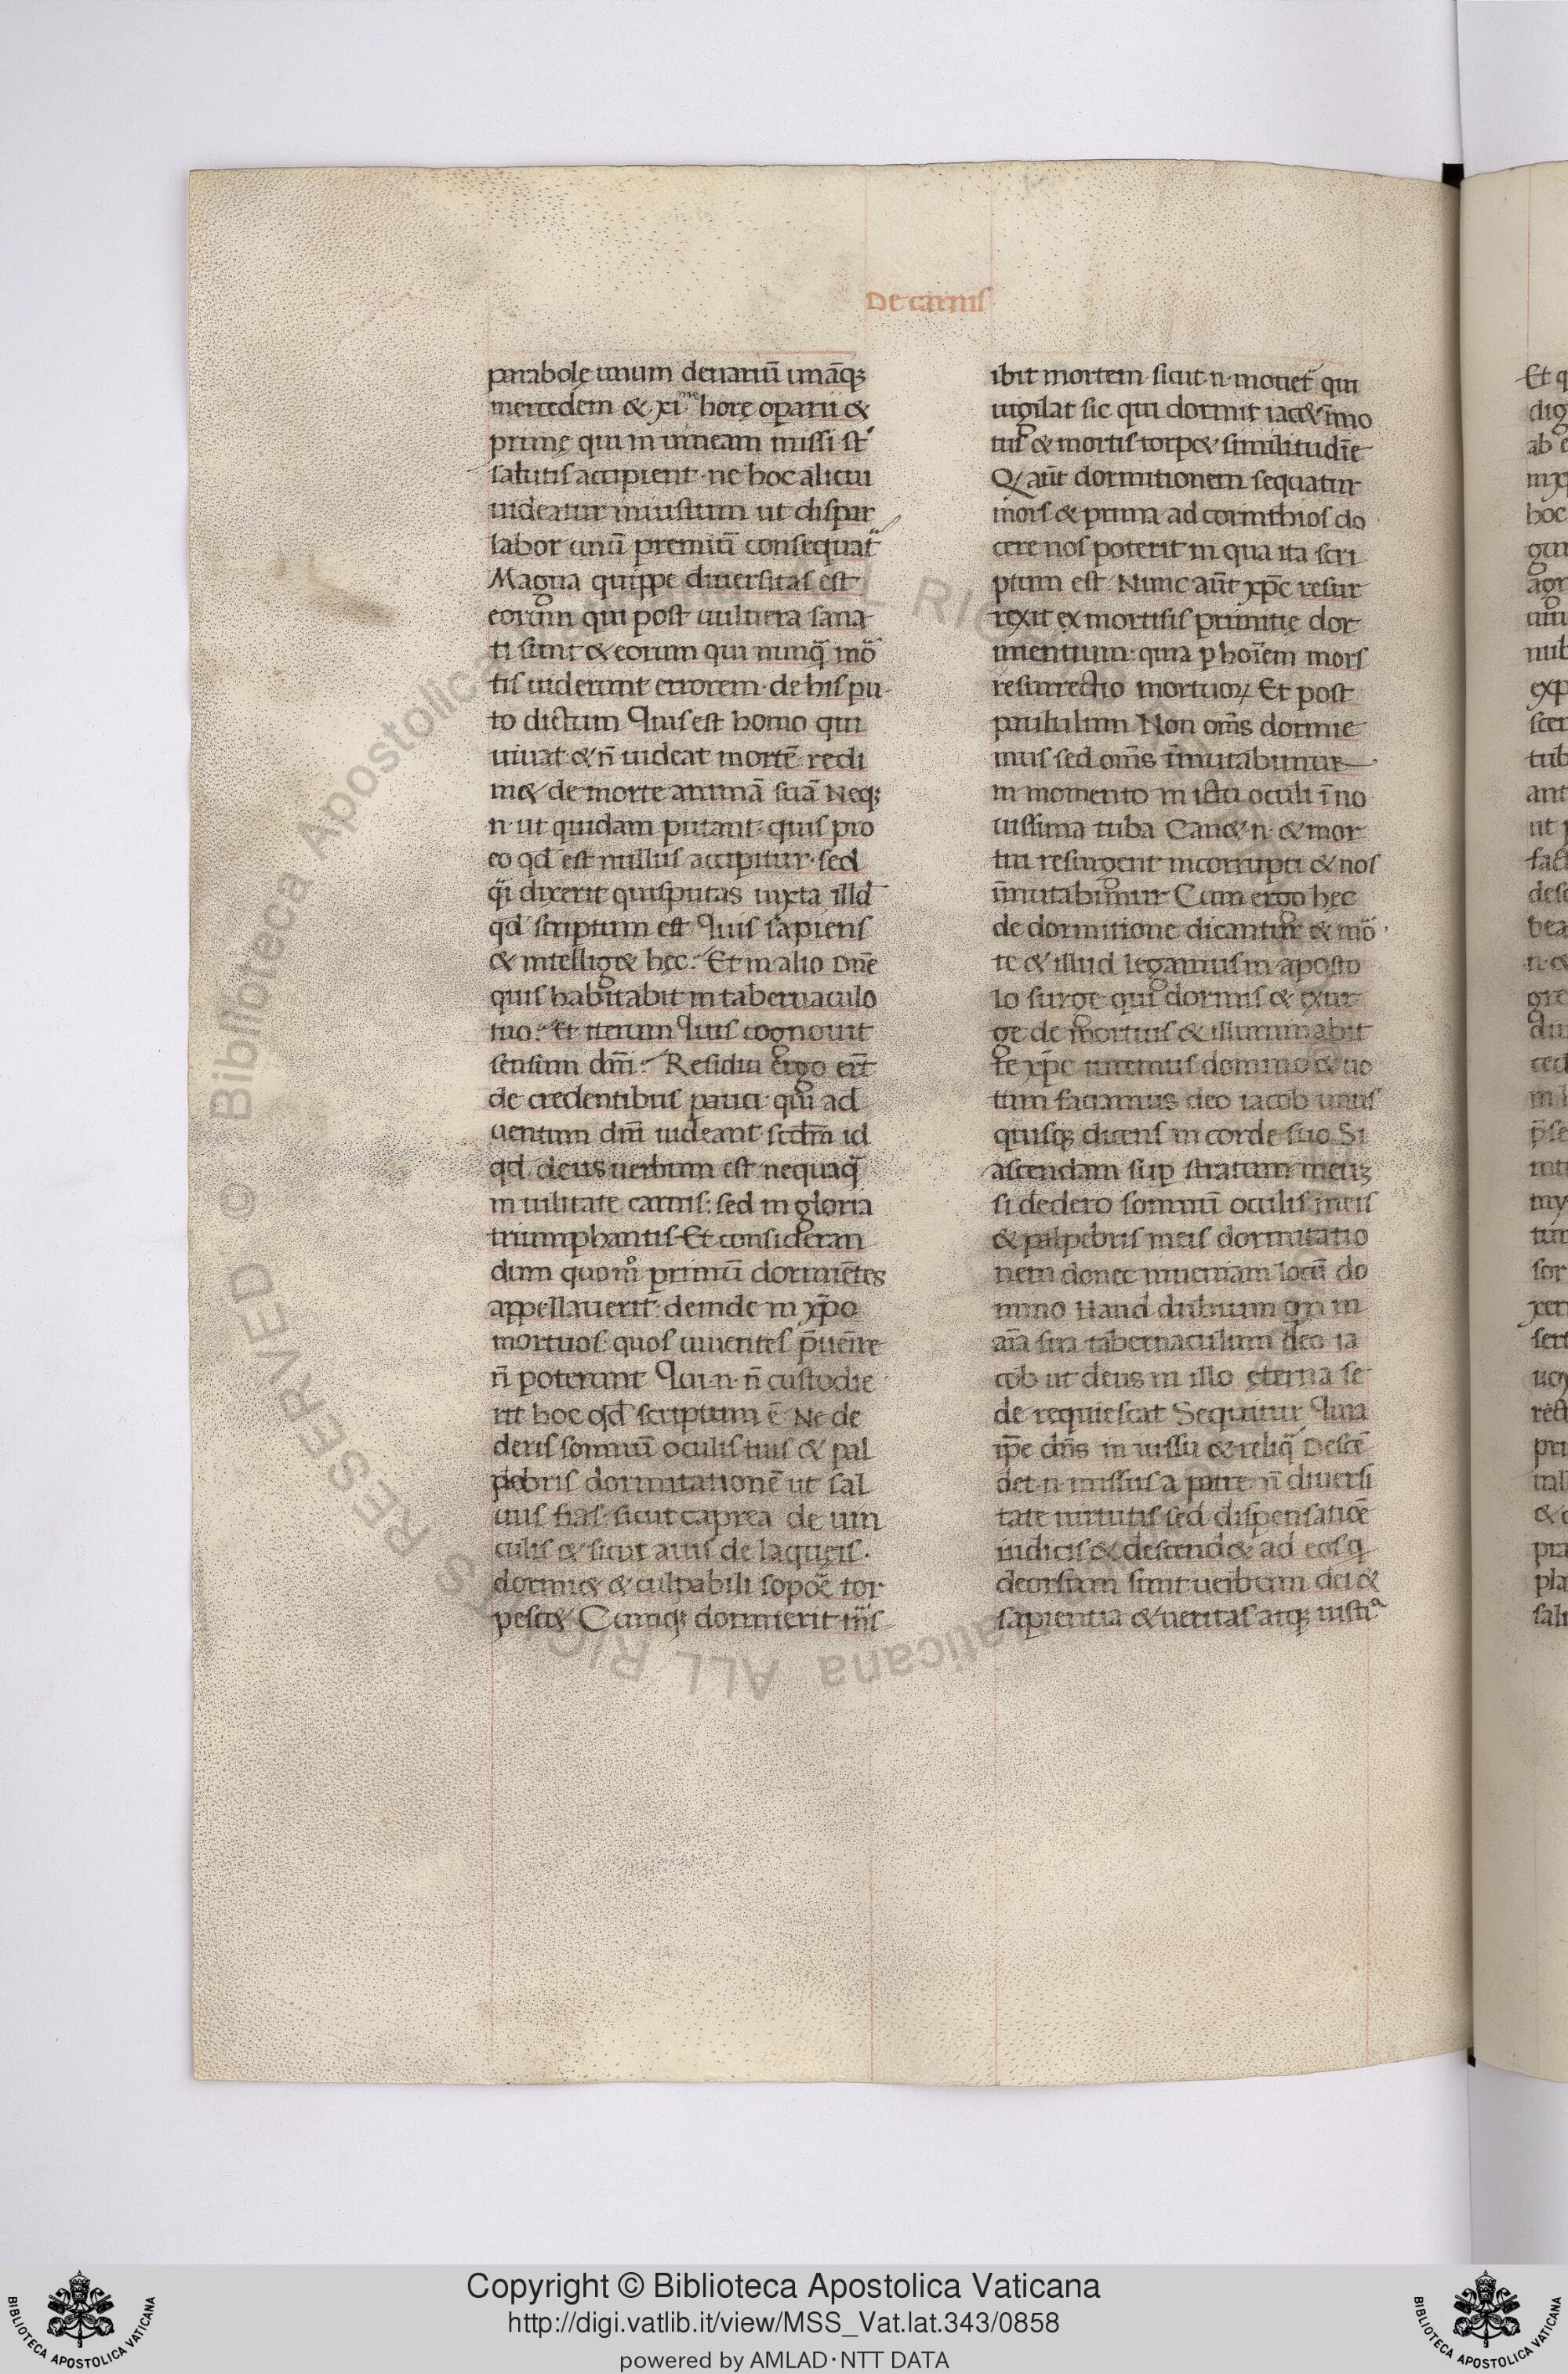 De carnis
parabolę unum denariū unāq;
mercedem & xi me horę operarii &
primę qui in uineam missi st̄
salutis accipient· ne hoc alicui
uideatur iniustum ut dispar
labor unū premiū consequat̄
Magna quippe diuersitas est
eorum qui post uulnera sana
ti sunt & eorum qui nunq̄ mo
tis uiderunt errorem· de his pu
to dictum Quis est homo qui
uiuat & n̄ uideat mortē redi
m& de morte animā suā Neq;
n· ut quidam putant quis pro
eo qd̄ est nullus accipitur· sed
dixerit quisputas iuxta illd̄
qd̄ scriptum est Quis sapiens
& intellig& hęc· Et in alio Dn̄e
quis habitabit in tabernaculo
tuo· Et iterum Quis cognouit
sensum dn̄i· Residui ergo er̄t
de credentibus pauci· qui ad
uentum dn̄i uideant scdm̄ id
qd̄ deus uerbum est nequaq̄
in uilitate carnis: sed in gloria
triumphantis Et consideran
dum quom̊ primū dormiētes
appellauerit· deinde in xp̄o
mortuos· quos uiuentes p̄uen̄re
n̄ poterunt Qui n· n̄ custodie
rit hoc qd̄ scriptum ē Ne de
deris somnū oculis tuis & pal
pebris dormitationē ut sal
uus fias· sicut caprea de uin
culis & sicut auis de laqueis·
dormi& & culpabili sopoē tor
pesc& Cumq; dormierit
ibit mortem· sicut n· mouet̄ qui
uigilat sic qui dormit iac& īmo
tus & mortis torp& similitudīe
Q aūt dormitionem sequatur
mors & prima ad corinthios do
cere nos poterit in qua ita scri
ptum est· Nunc aūt xp̄c resur
rexit ex mortisis primitię dor
mientium· quia p hoīem mors
resurrectio mortuoꝝ Et post
paululum Non om̄s dormie
mus sed om̄s īmutabimur
in momento in ictu oculi ī no
uissima tuba Can& n· & mor
tui resurgent incorrupti & nos
īmutabimur Cum ergo hęc
de dormitione dicantur & mo
te & illud legamus in aposto
lo surge qui dormis & exur
ge de mortuis & illuminabit
te xp̄c iuremus domino & uo
tum faciamus deo iacob unus
quisq; dicens in corde suo Si
ascendam sup stratum meuꝫ
si dedero somnū oculis meis
& palpebris meis dormitatio
nem donec inueniam locū do
mino Haud dubium qn in
aīa sua tabernaculum deo ia
cob ut deus in illo ęterna se
de requiescat Sequitur Quia
ip̄e dn̄s in iussu & reliq̄ Descē
det n· missus a patre n̄ diuersi
tate uirtutis sed dispensatiōe
iudicis & descend& ad eos q
deorsum sunt uerbum dei &
sapientia & ueritas atq; iustiᵃ
Copyright © Biblioteca Apostolica Vaticana
http://digi.vatlib.it/view/MSS_Vat.lat.343/0858
powered by AMLAD·NTT DATA
BIBLIOTECA APOSTOLICA VATICANA
BIBLIOTECA APOSTOLICA VATICANA